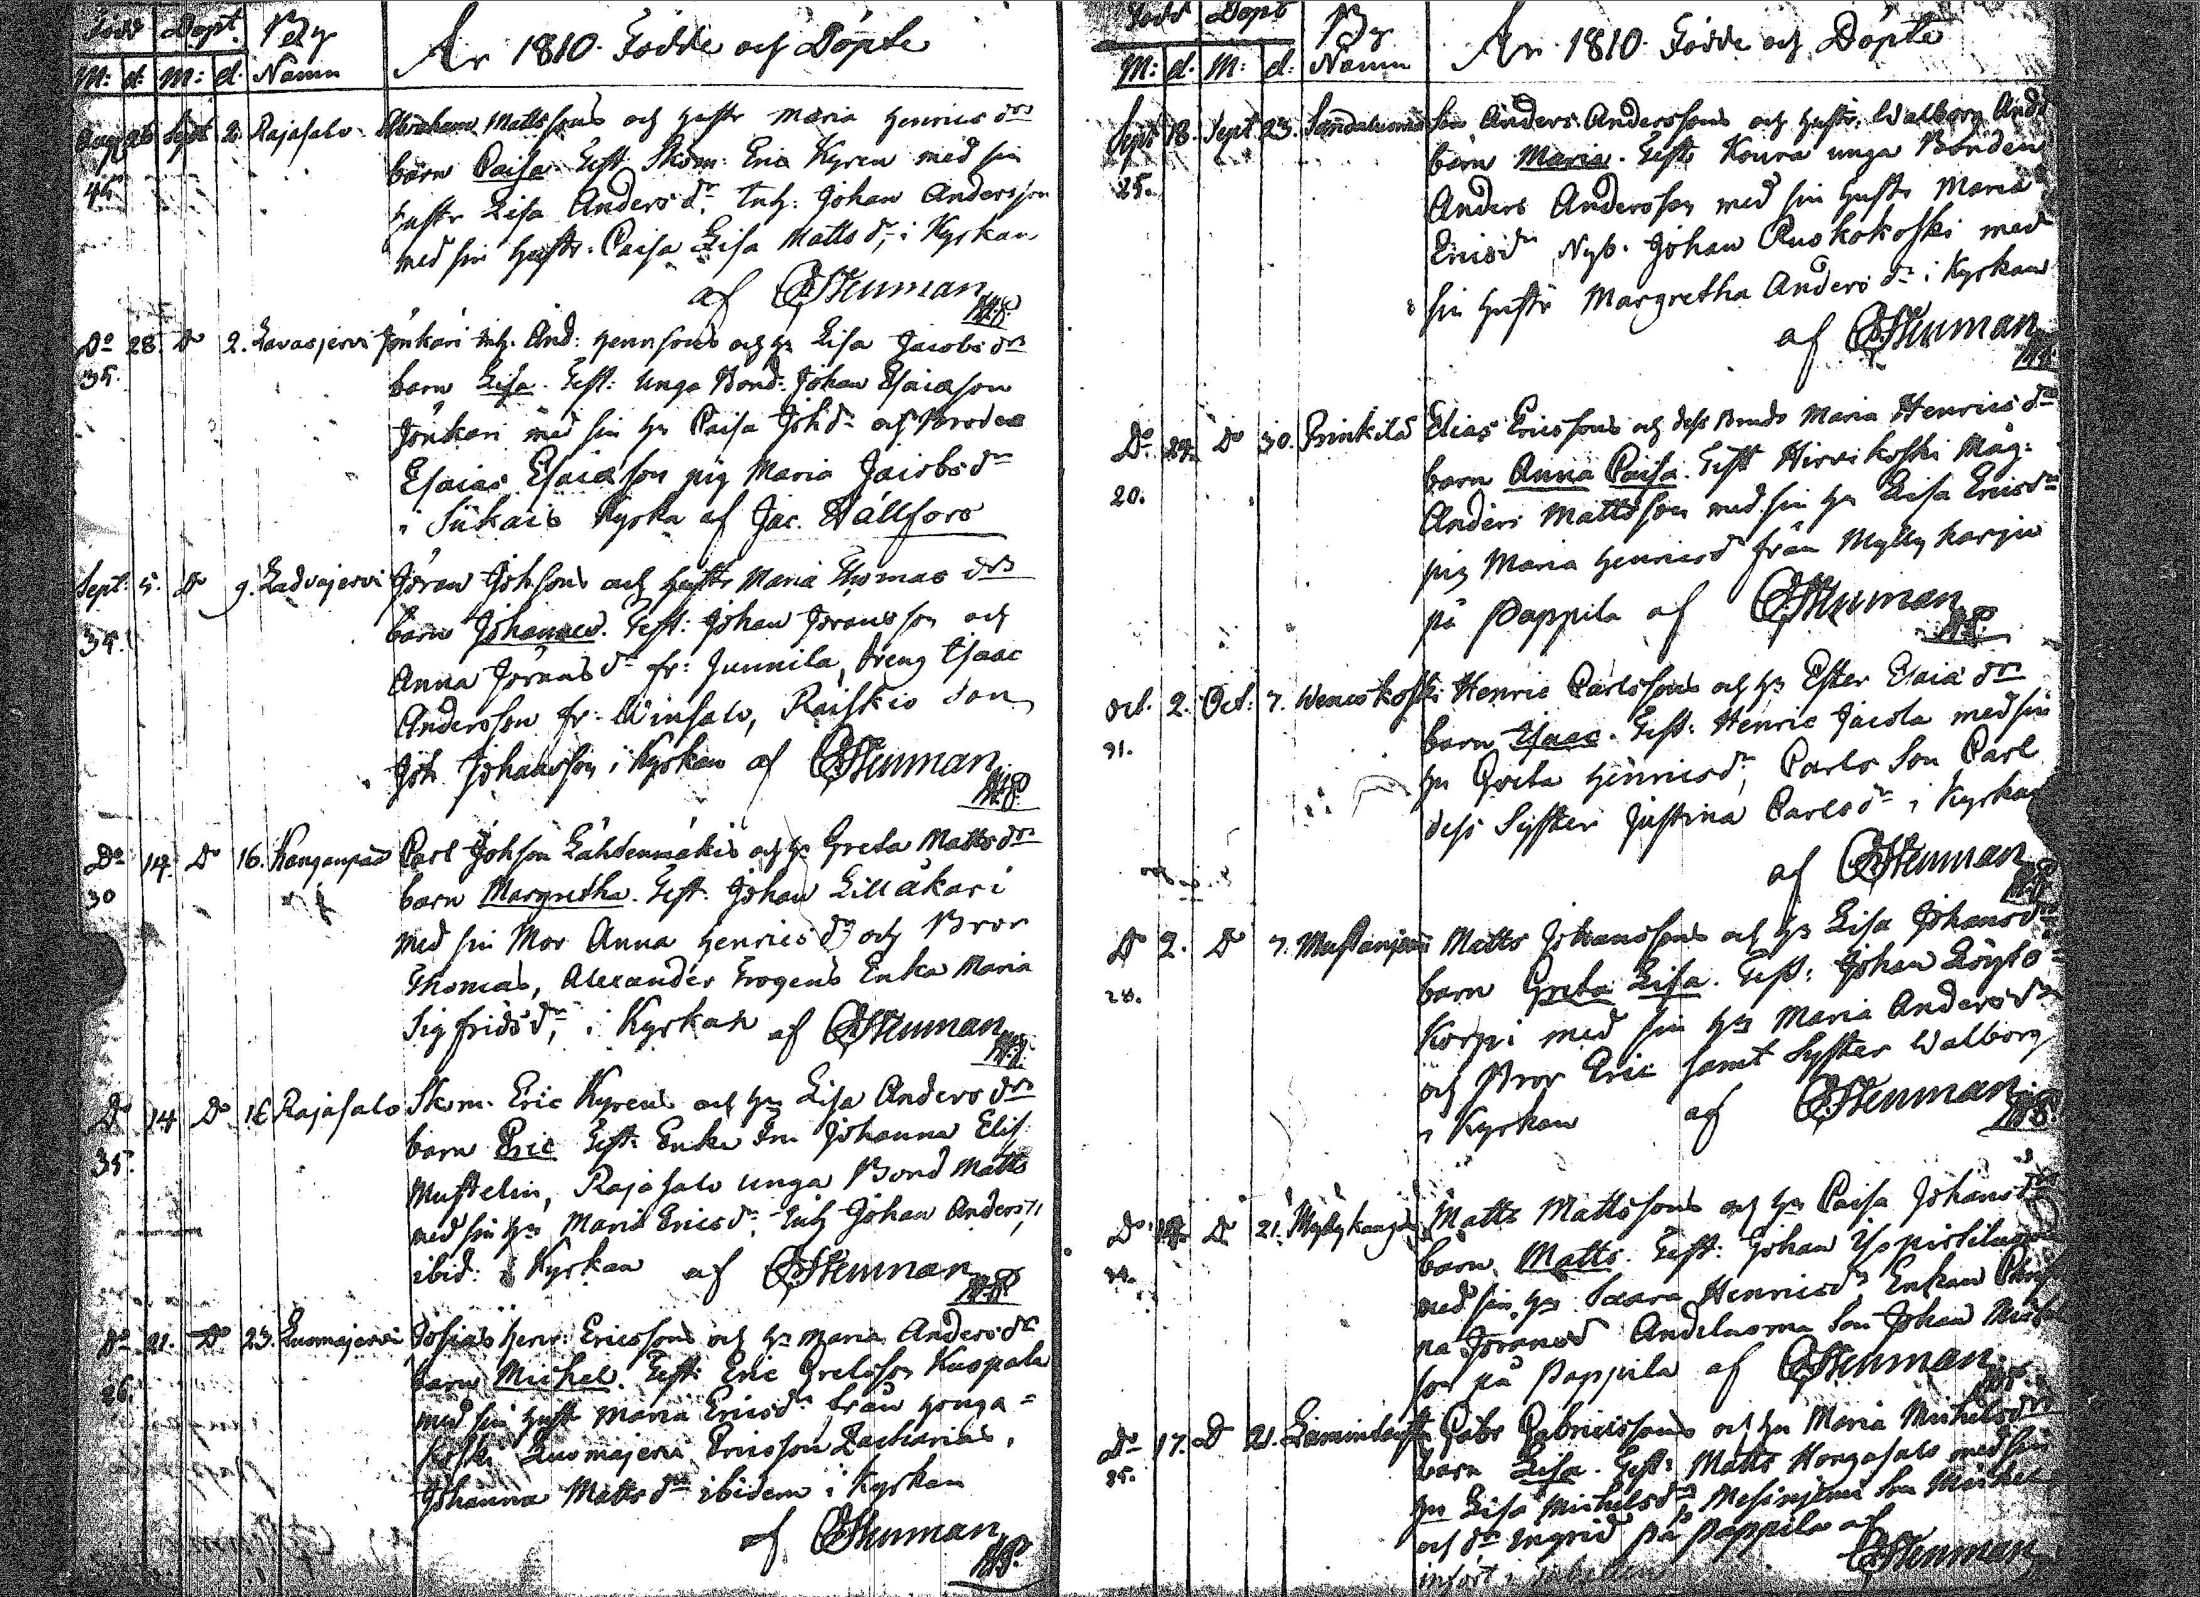 född Döpt. By
M: d: M: d. Namn
År 1810. Födde och Döpte
Aug. 26 Sept 2. Rajasalo Abraham Mattssons och hustr Maria Henrics drs
46 barn Caisa. Test. Skom: Eric Kyren med sin
hustr Lisa Anders dr. Inh: Johan Andersson
med sin hustr. Caisa Lisa Matts dr, i Kyrkan
af Stenman
Do 28. Do 2. Lavasjervi Jönkäri inh. And: Hennssons och h. Lisa Jacobs drs
35. barn Lisa. Test: Unga Bond: Johan Esaiason
Jönkäri med sin h. Caisa Joh dr och Broder
Esaias Esaiason pig Maria Jacobs dr
i Siikais Kyrka af Jac. Hällfors
Sept. 5. Do 9. Ladvajervi Jöran Johsons och hustr Maria Thomas drs
35. barn Johannes. Test: Johan Jöransson och
Anna Jörans dr fr: Junnila, dreng Isaac
Andersson fr: Winsalo, Raiskio son
Joh Johansson i Kyrkan af Stenman
Do 14. Do 16. Kanganpää Carl Johson Lähdenmäkis och h. Greta Matts drs
30 barn Margretha. Test. Johan Lilläkari
med sin Mor Anna Henrics dr och Bror
Thomas, Alexander Frogens Enka Maria
Sigfrids dr, i Kyrkan af Stenman
Do 14 Do 16 Rajasalo Skom. Eric Kyrens och h. Lisa Anders drs
35. barn Eric Test: Enke Fru Johanna Elis.
Mustelin, Rajasalo unga Bond Matts
med sin h. Maria Erics dr. Inh Johan Anders
ibid: i Kyrkan af Stenman
Do 21. Do 23. Luomajervi Josias Henr: Ericssons och h. Maria Anders dr
26. barn Michel. Test: Eric Grelsson Kuspala
med sin hustr Maria Erics dr från Honga-
koski Luomajervi Ericsson Zacharias,
Johanna Matts dr ibidem i Kyrkan
af Stenman
Född Döpt By
M: d. M: d: Namn
År 1810. Födde och Döpte
Sept 18. Sept 23. Sandaluoma Son Anders Anderssons och hustr. Walborg And
25. barn Maria. Test: Koura unga Bonden
Anders Andersson med sin hustr Maria
Erics dr Nyb. Johan Ruokokoski med
sin hustr Margretha Anders dr i Kyrkan
af Stenman
Do Do 30. Prinkilä Elias Ericssons och dess Bruds Maria Henrics drs
20. barn Anna Caisa. Test Hirvikoski Måg:
Anders Mattsson med sin h. Lisa Erics dr
pig Maria Henrics dr från Myllyharju
på Pappila af Stenman
Oct. 2. Oct: 7. Weneskoski Henric Carlssons och h. Ester Esaiæ drs
31. barn Isaac. Test: Henric Jacola med sin
h. Greta Henrics dr, Carls Son Carl
dess Syster Justina Carls dr i Kyrkan
af Stenman
Do 2. Do 7. Mustanjervi Matts Johanssons och h. Lisa Johans drs
28. barn Greta Lisa. Test: Johan Löyto-
Korpi med sin h. Maria Anders dr
och Bror Eric samt Syster Walborg
i Kyrkan af Stenman
Do Do 21. Myllykangas Matts Mattssons och h. Caisa Johans drs
barn Matts. Test: Johan
med sin h. Saara Henrics dr Enkan
Jörans dr Andeluoma Son Johan
son på Pappila af Stenman
Do 17. Do 21. Gabr Gabrielssons och h. Maria Michels drs
35. barn Lisa. Test: Matts Hongasalo med sin
h. Lisa Michels dr, Mesinjervi Son Michel
och dr Ingrid på Pappila af
Stenman
infört i tabellen